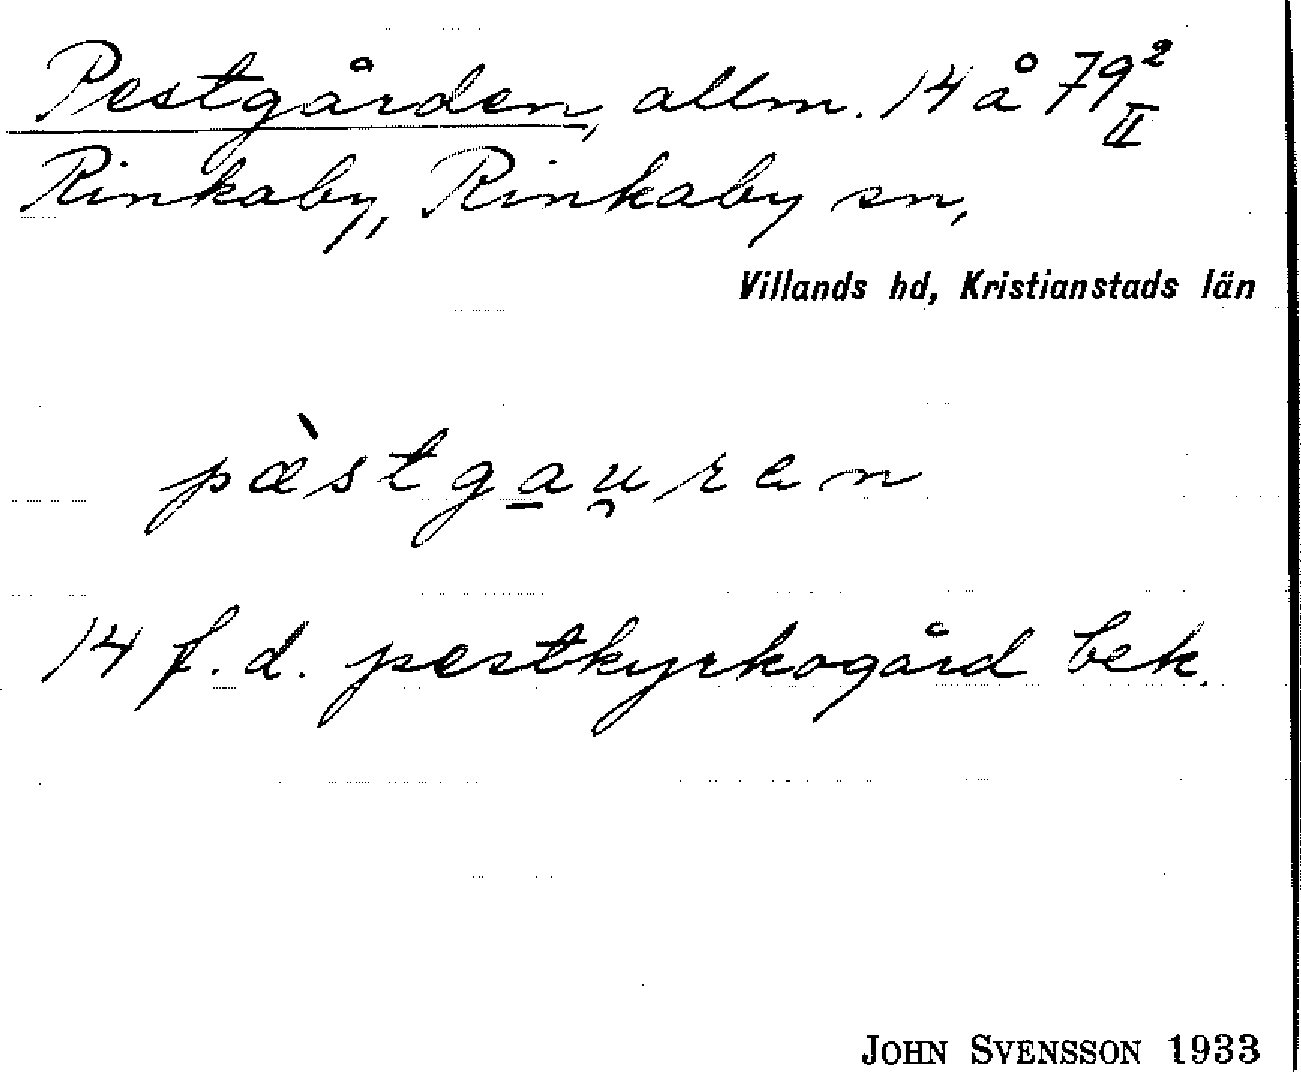 Pestgården, allm. 14 å 79²
II
Rinkaby, Rinkaby sn,
Villands hd, Kristianstads län
pæ̀stga̱u̯ren
14 f.d. pestkyrkogård bek.
JOHN SVENSSON 1933